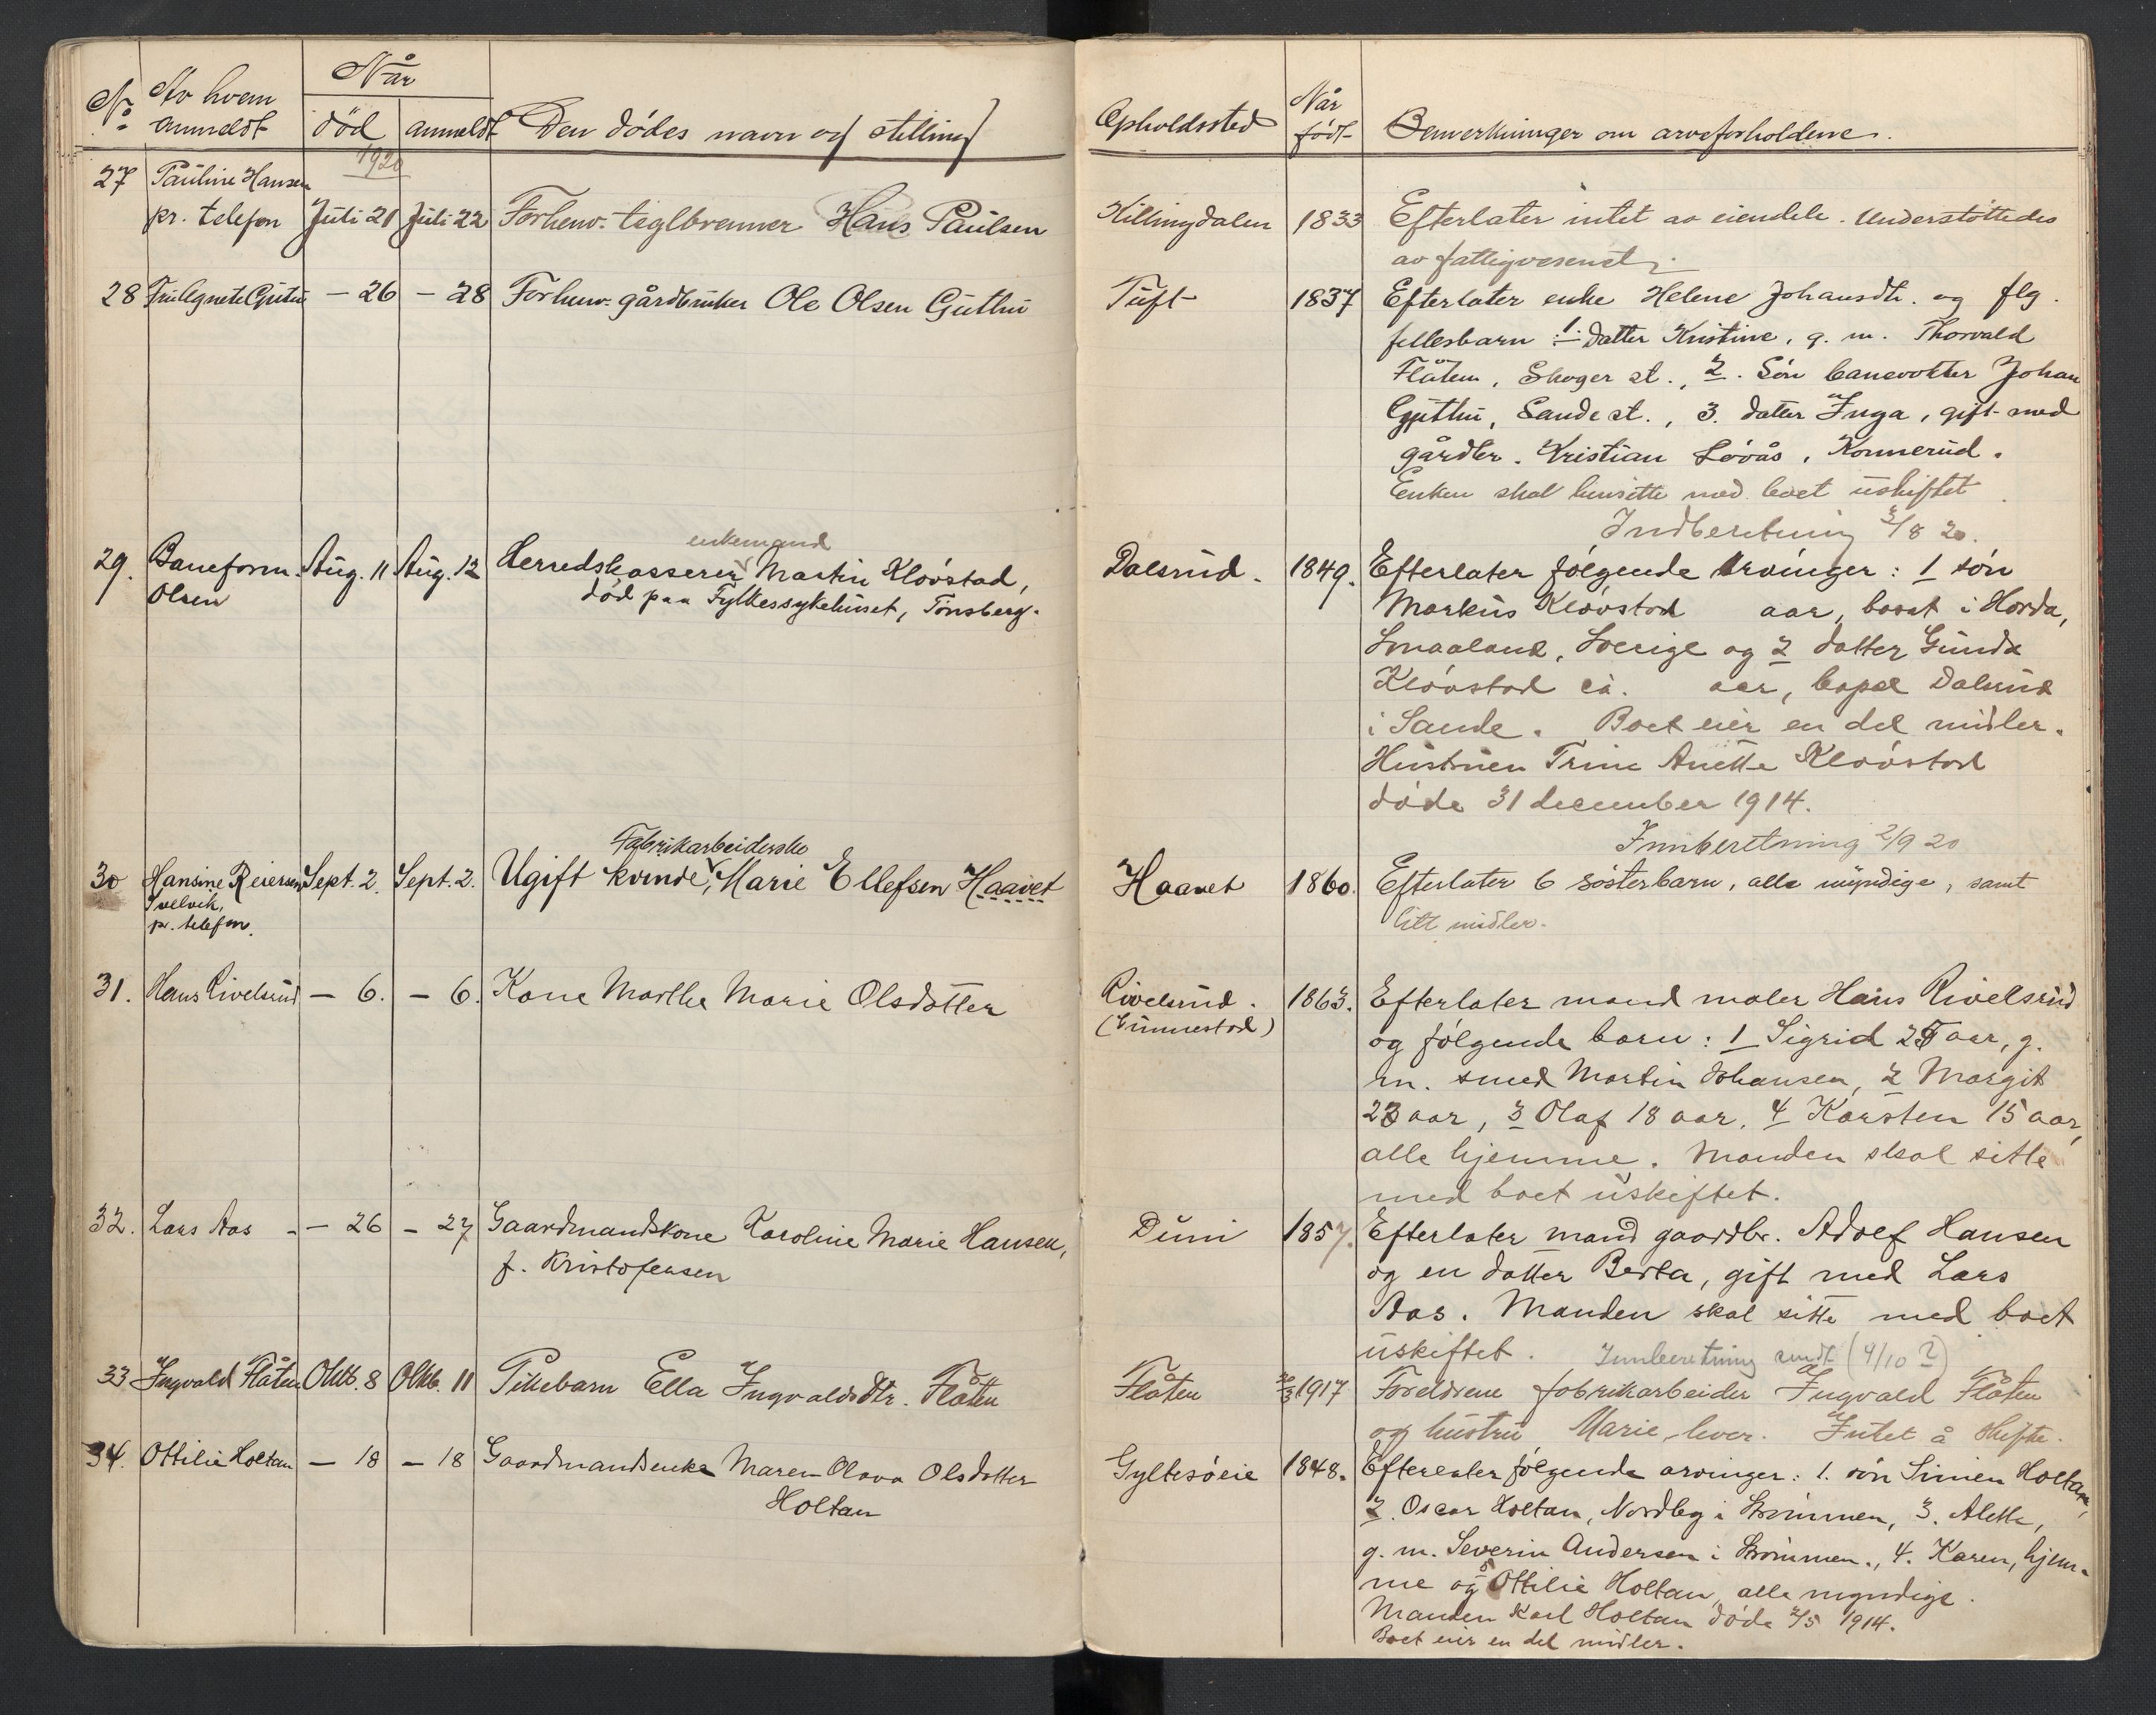 Når
No Av hvem anmeldt død anmeldt Den dødes navn og stilling Opholdssted Når født Bemerkninger om arveforholdene.
1920
27 Pauline Hansen
pr. telefon Juli 21 Juli 22 Forhenv. teglbrenner Hans Paulsen Killingdalen 1833 Efterlater intet av eiendele. Understøttedes
av fattigvesenet.
28 Fru Agnete Guthu — 26 — 28 Forhenv. gårdbruker Ole Olsen Guthu Tuft 1837 Efterlater enke Helene Johansdtr. og flg.
fellesbarn: 1. Datter Kristine, g. m. Thorvald
Flåten, Skoger st., 2. Søn banevokter Johan
Guthu, Sande st., 3. datter Inga, gift med
gårdbr. Kristian Løvås, Konnerud.
Enken skal hensitte med boet uskiftet.
Indberetning 3/8 20.
enkemand
29. Baneform. Olsen Aug. 11 Aug. 12 Herredskasserer Martin Kløvstad,
død paa Fylkessykehuset, Tønsberg.
Dalsrud. 1849. Efterlater følgende Arvinger: 1 søn
Markus Kløvstad aar, bosat i Horda,
Smaaland, Sverige og 2 datter Gunda
Kløvstad ca. aar, bopæl Dalsrud
i Sande. Boet eier en del midler.
Hustruen Trine Anette Kløvstad
døde 31 december 1914.
Innberetning 2/9 20
Fabrikarbeiderske
30 Hansine Reiersen Sept. 2. Sept. 2. Ugift kvinde, Marie Ellefsen Haavet Haavet 1860. Efterlater 6 søsterbarn, alle myndige, samt
Svelvik,
pr. telefon.
litt midler.
31. Hans Rivelsrud — 6. — 6. Kone Marthe Marie Olsdatter Rivelsrud. 1863. Efterlater mand maler Hans Rivelsrud
(Gunnestad)
og følgende barn: 1 Sigrid 25 aar, g.
m. smed Martin Johansen, 2 Margit
23 aar, 3 Olaf 18 aar, 4 Karsten 15 aar,
alle hjemme. Manden skal sitte
med boet uskiftet.
32. Lars Aas — 26 — 27 Gaardmandskone Karoline Marie Hansen,
f. Kristofersen
Duni 1857. Efterlater mand gaardbr. Adolf Hansen
og en datter Berta, gift med Lars
Aas. Manden skal sitte med boet
uskiftet. Innberetning sendt (4/10 ?)
33 Ingvald Flåten Oktb. 8 Oktb. 11 Pikebarn Ella Ingvaldsdtr. Flåten Flåten 1917 Foreldrene fabrikarbeider Ingvald Flåten
og hustru Marie lever. Intet å skifte.
34. Ottilie Holtan — 18 — 18 Gaardmandsenke Maren Olava Olsdatter
Holtan
Gyltesøeie 1848. Efterlater følgende arvinger: 1. søn Simen Holtan,
2. Oscar Holtan, Nordby i Strømmen, 3. Alette,
g. m. Severin Andersen i Strømmen., 4. Karen, hjem-
me og 5 Ottilie Holtan, alle myndige.
Manden Karl Holtan døde 2/5 1914.
Boet eier en del midler.